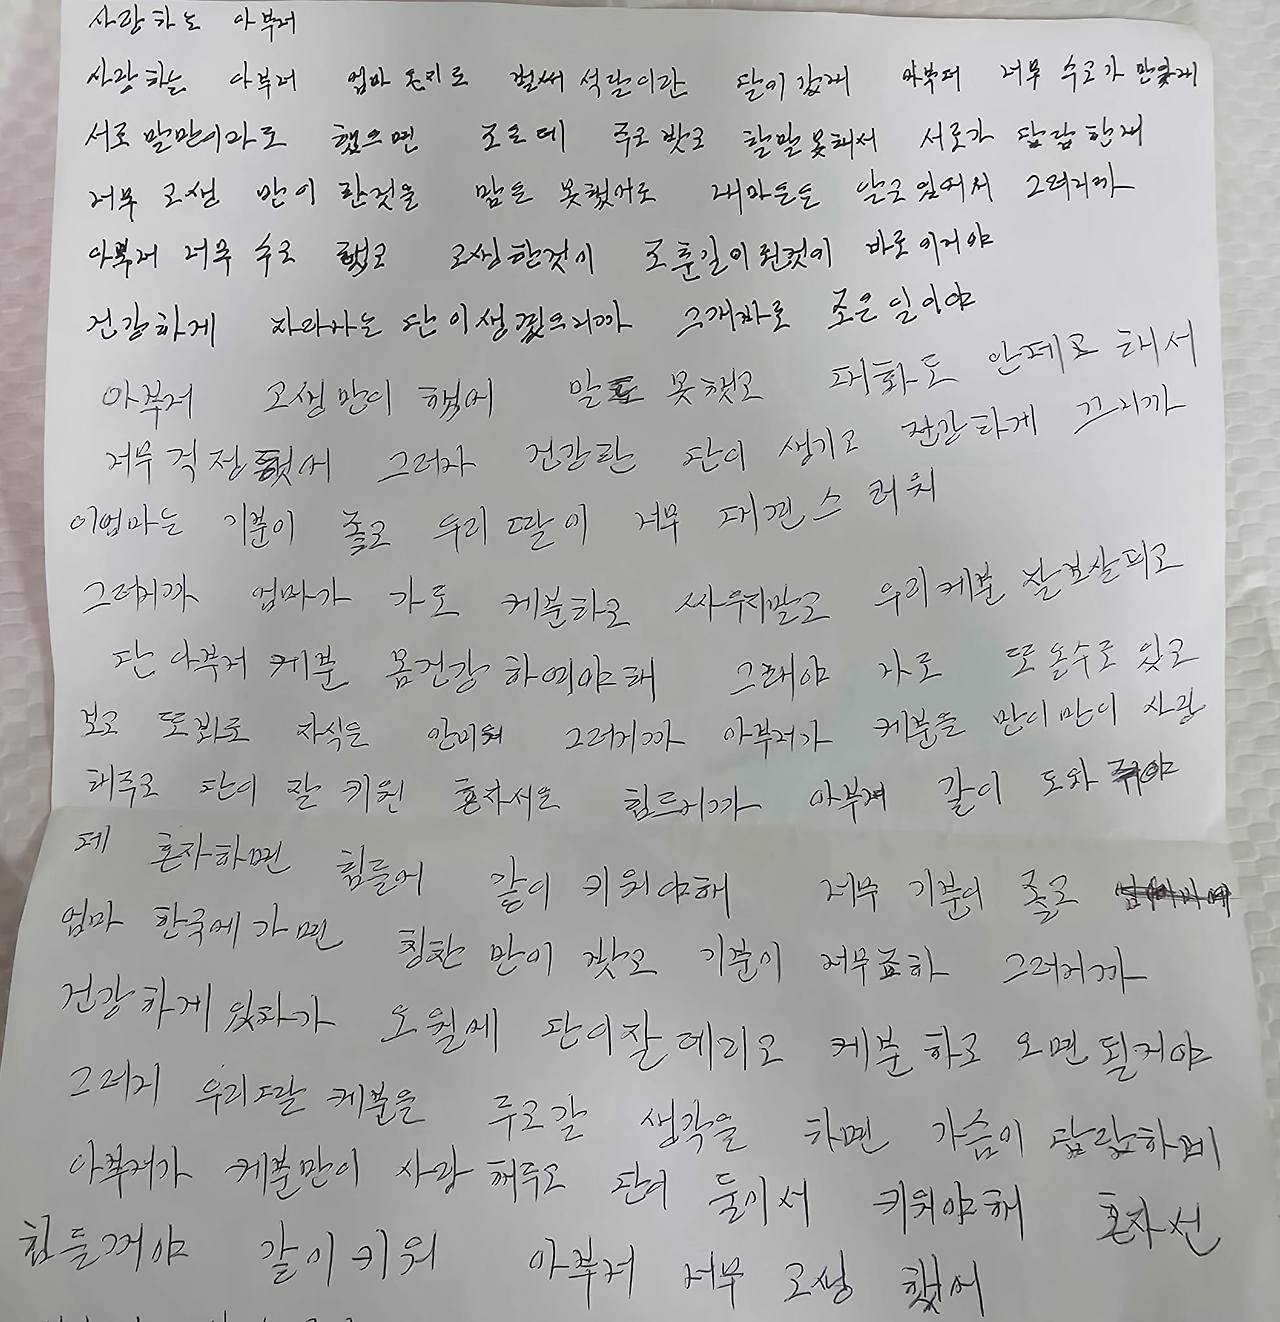 사랑하는 아부저
사랑하는 아부저 엄마 온지로 벌써 석달이란 달이 갔내 아부저 저무 수고가 만앟내
서로 말만이라도 했으면 조은데 주고 밧고 할말못해서 서로가 답답한재
저무 고생 만이 한것을 말은 못했어도 내마은은 알고있어서 그러지까
아부저 저무 수고 했고 고생한것이 조훈일이왼것이 바로이거야
건강하게 자라나는 단이생곘으리까 그개바로 조은일이야
아부저 고생만이 했어 말 못했고 대화도 안데고 해서
저무 걱정했어 그러자 건강란 단이 생기고 건강하게 크리까
이엄마는 기분이 좋고 우리딸이 저무 대견스러워
그러지까 엄마가 가도 케분하고 싸우지말고 우리케분 잘보살피고
단 아부저 케분 몸건강 하여야해 그래야 나도 또올수도있고
보고 또봐도 자식은 안미워 그러지까 아부저가 케분을 만이만이 사랑
해주고 단이 잘 키원 혼자서는 힘드니까 아부저 같이 도와 줘야
데 혼자하면 힘들어 같이 키워야해 저무 기분이 좋고
엄마 한국에가면 칭찬 만이 갓고 기분이 저무죠하 그러지까
건강하게있다가 오월에 단이잘데리고 케분하고 오면될거야
그러지 우리딸케분을 두고갈 생각을 하면 가슴이 답답하며
아부저가 케분만이 사랑해주고 단이 둘이서 키워야해 혼자선
힘들꺼야 같이키워 아부저 저무 고생 했어